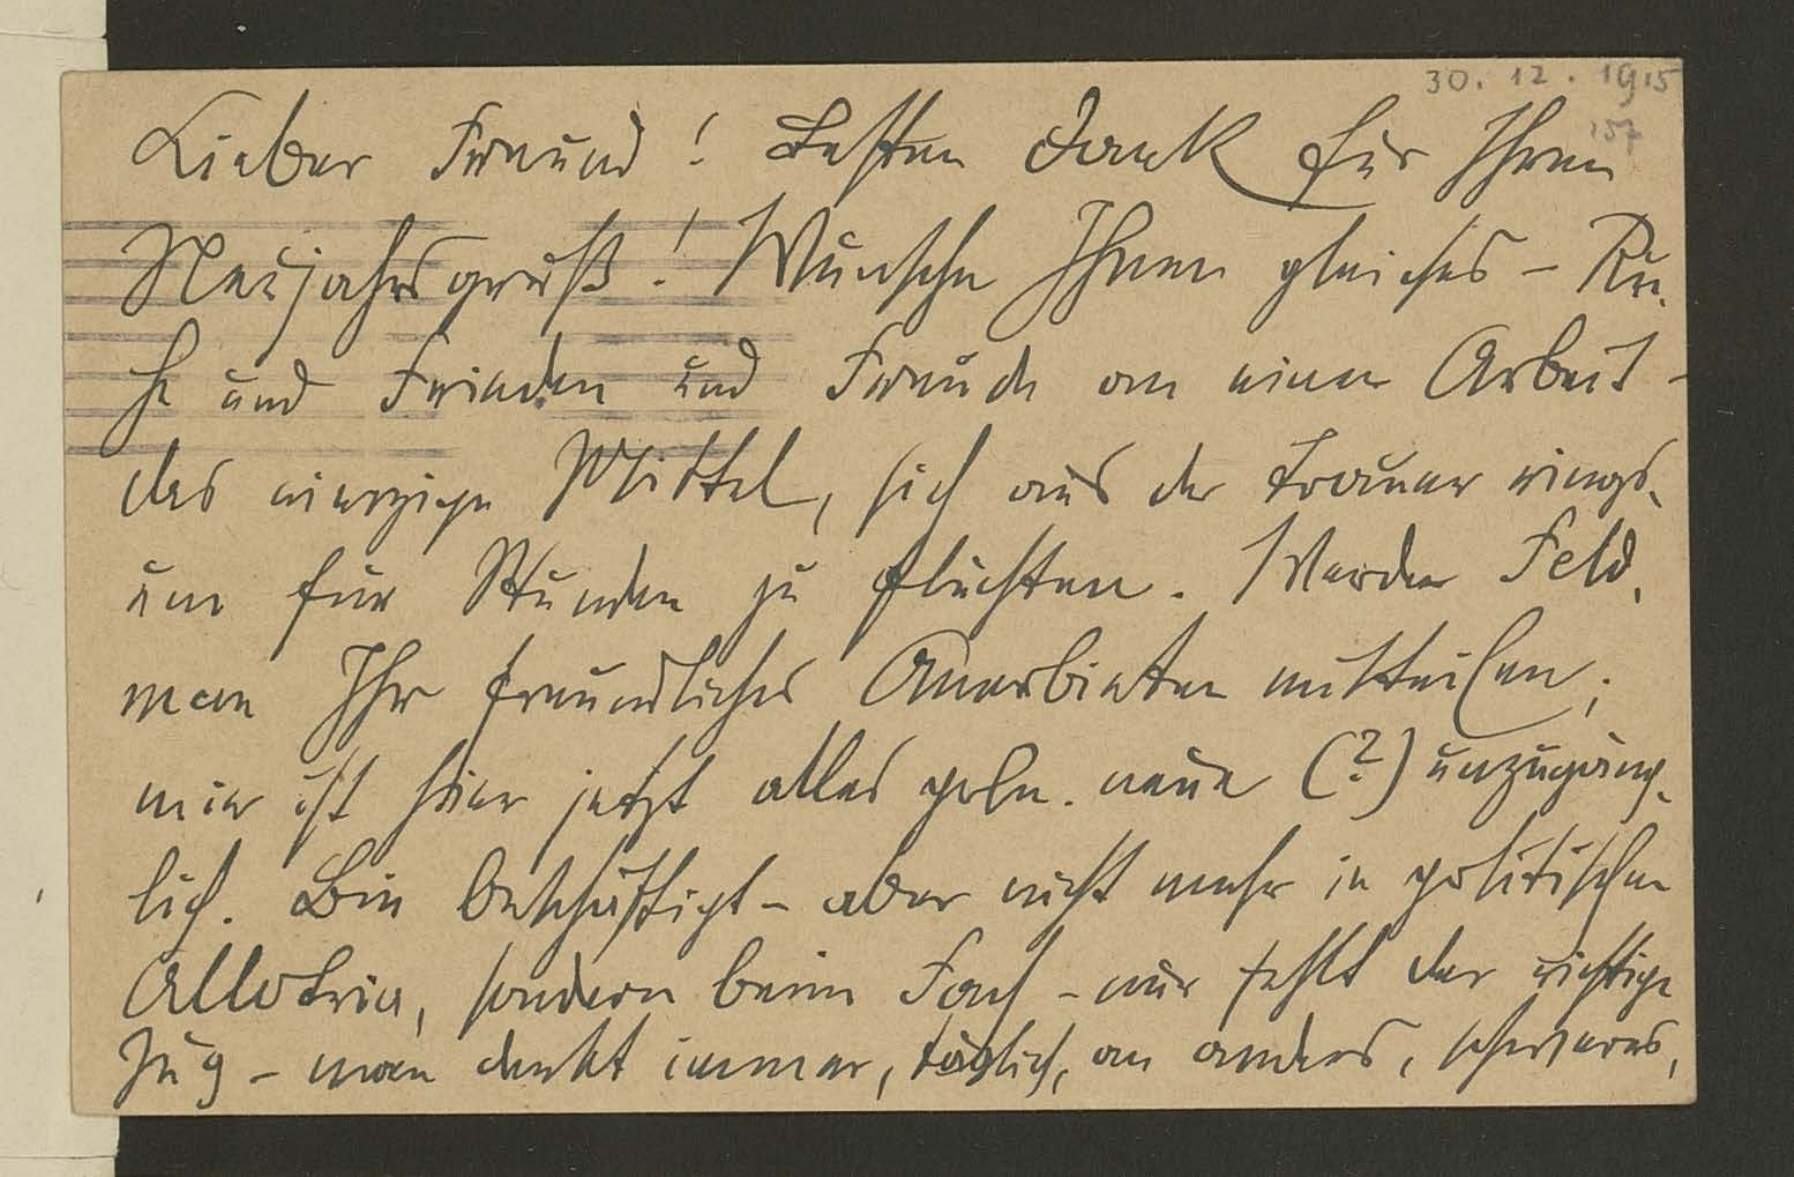 30. 12. 1915
157
Lieber Freund! Besten Dank für Ihren
Neujahrsgruß! Wünsche Ihnen gleiches – Ru-
he und Frieden und Freude an einer Arbeit –
das einzige Mittel, sich aus der Trauer rings-
um für Stunden zu flüchten. Werde Feld-
man Ihr freundliches Anerbieten mitteilen;
mir ist hier jetzt alles poln. neue (?) unzugäng-
lich. Bin beschäftigt – aber nicht mehr in politischen
Allotria, sondern beim Fach – nur fehlt der richtige
Zug – man denkt immer, täglich, an anderes, schwereres,